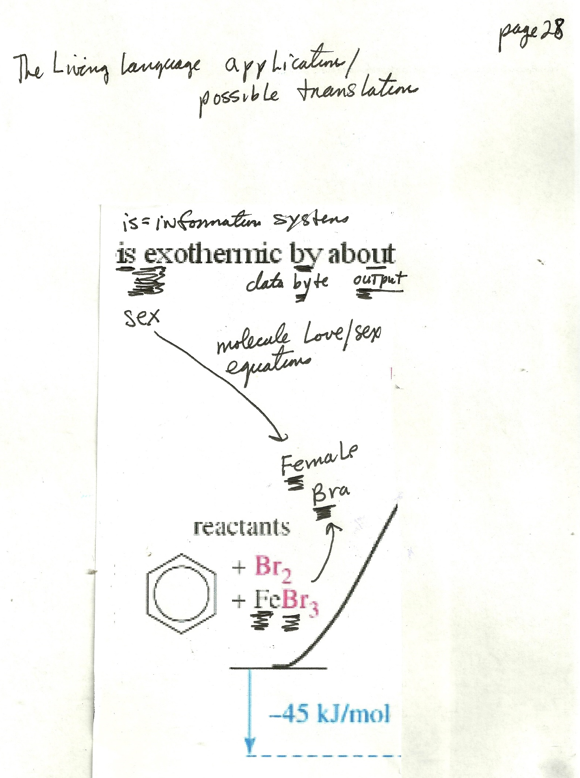 page 28
The Living Language application/
possible translation
is = information systems
is exothermic by about
data byte output
sex
molecule Love/sex
equations
Female
Bra
reactants
+ Br₂
+ FeBr₃
–45 kJ/mol